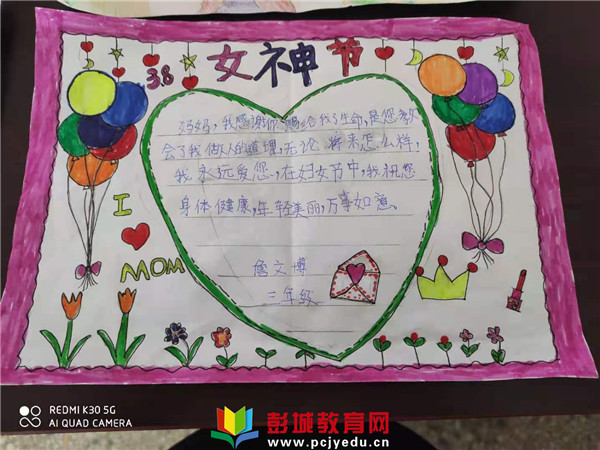 38 女神节
妈妈,我感谢你赐给我了生命,是您教
会了我做人的道理,无论将来怎么样,
我永远爱您,在妇女节中,我祝您
身体健康,年轻美丽,万事如意。
詹文博
三年级
I
MOM
REDMI K30 5G
AI QUAD CAMERA
彭城教育网
www.pcjyedu.cn